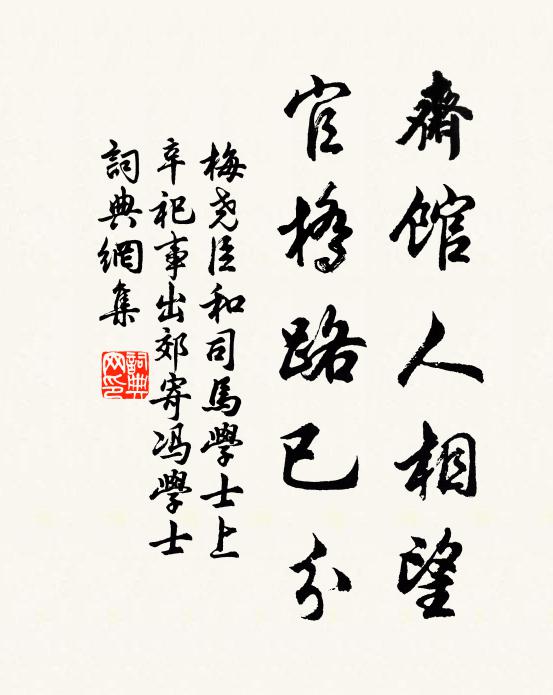 齋館人相望
官橋路已分
梅尧臣和司馬學士上
辛祀事出郊寄冯學士
詞典網集
詞典網印